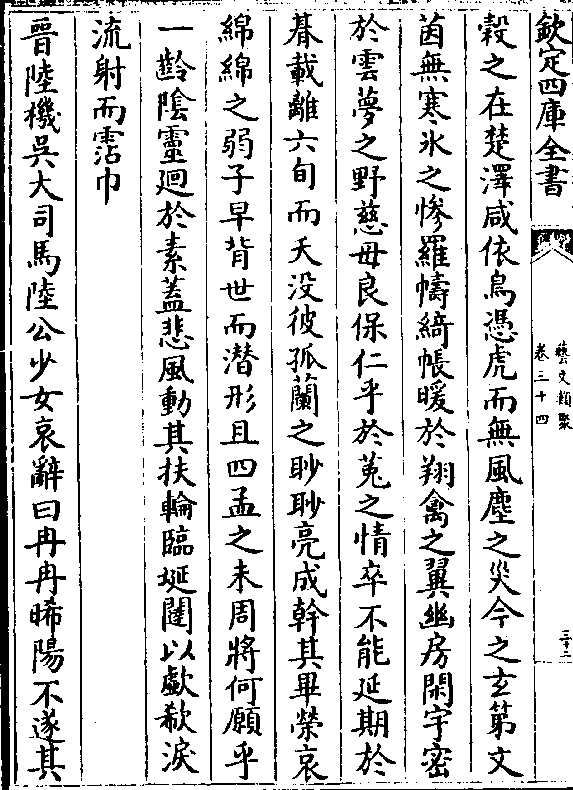 欽定四庫全書
藝文類聚
卷三十四
三十二
穀之在楚澤咸依烏憑虎而無風塵之災今之玄第文
茵無寒氷之慘羅幬綺帳暖於翔禽之翼幽房閑宇密
於雲夢之野慈母良保仁乎於菟之情卒不能延期於
朞載離六旬而夭没彼孤蘭之眇眇亮成幹其畢榮哀
綿綿之弱子早背世而潜形且四孟之未周將何願乎
一齡陰靈迴於素蓋悲風動其扶輪臨埏闥以歔欷淚
流射而霑巾
晉陸機吳大司馬陸公少女哀辭曰冉冉晞陽不遂其